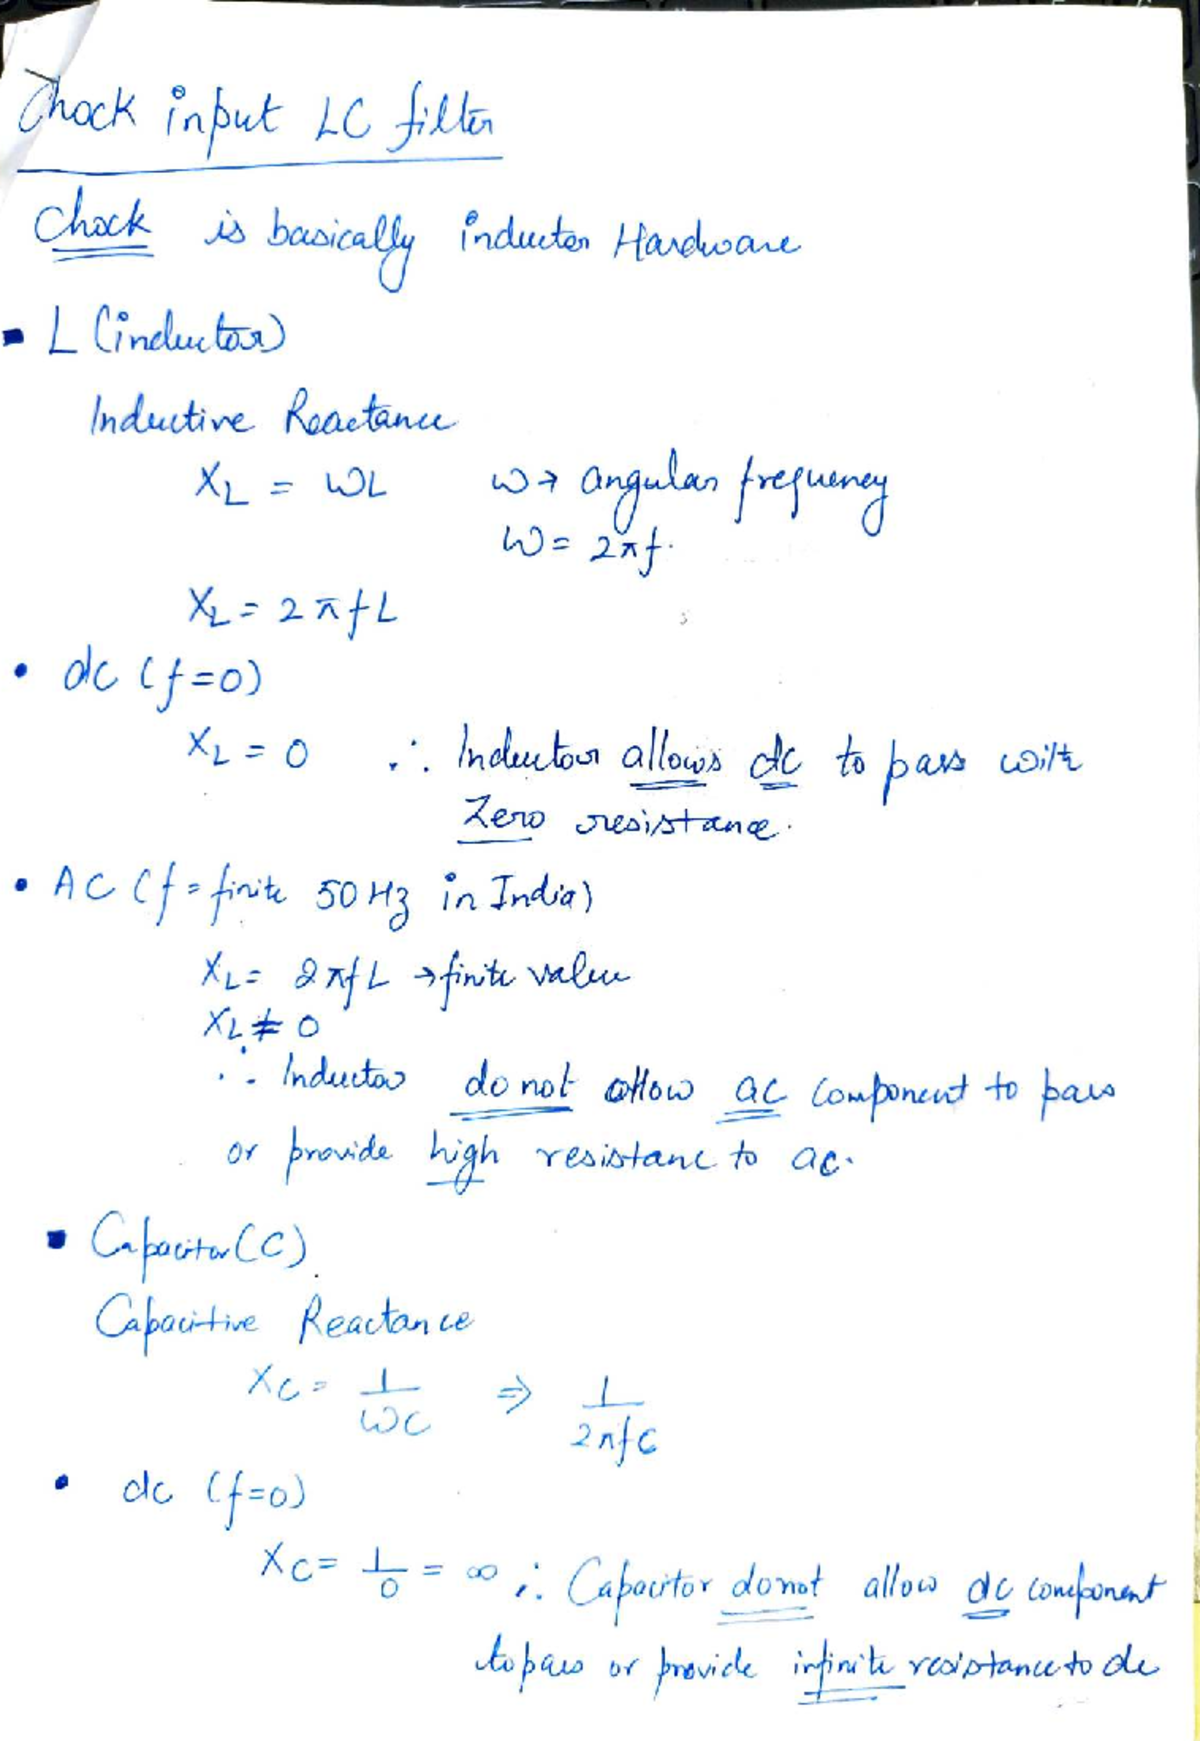 Chock input LC filter
Chock is basically inductor Hardware
▪ L (inductor)
Inductive Reactance
X_L = ωL ω → angular frequency
ω = 2πf.
X_L = 2πfL
• dc (f=0)
X_L = 0 ∴ Inductor allows dc to pass with
Zero resistance.
• AC (f = finite 50 Hz in India)
X_L = 2πfL → finite value
X_L ≠ 0
∴ Inductor do not allow ac component to pass
or provide high resistanc to ac.
▪ Capacitor (C)
Capacitive Reactance
X_C = 1/ωC ⇒ 1/2πfC
• dc (f=0)
X_C = 1/0 = ∞ ∴ Capacitor do not allow dc component
to pass or provide infinite resistance to dc